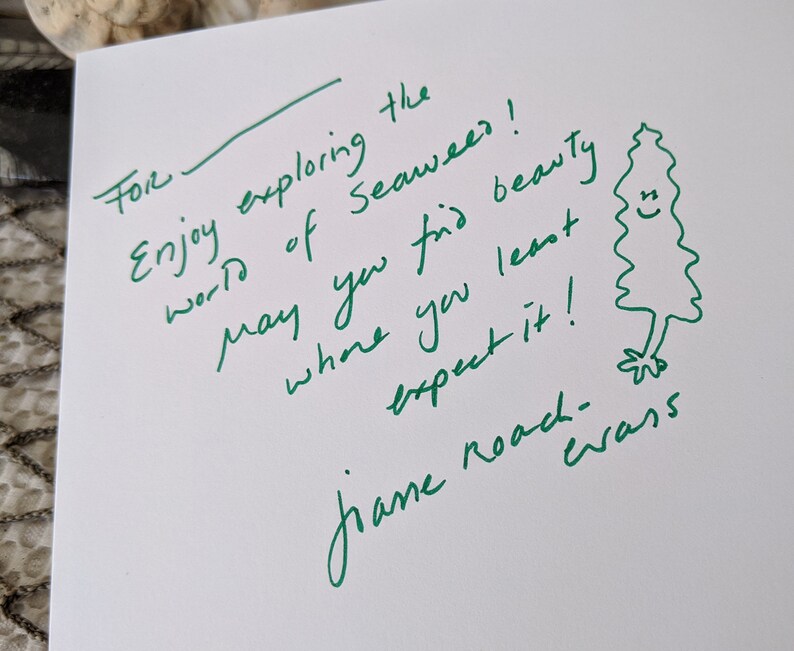 For ________
Enjoy exploring the
world of seaweed!
May you find beauty
where you least
expect it!
Josie Roach-
Evans